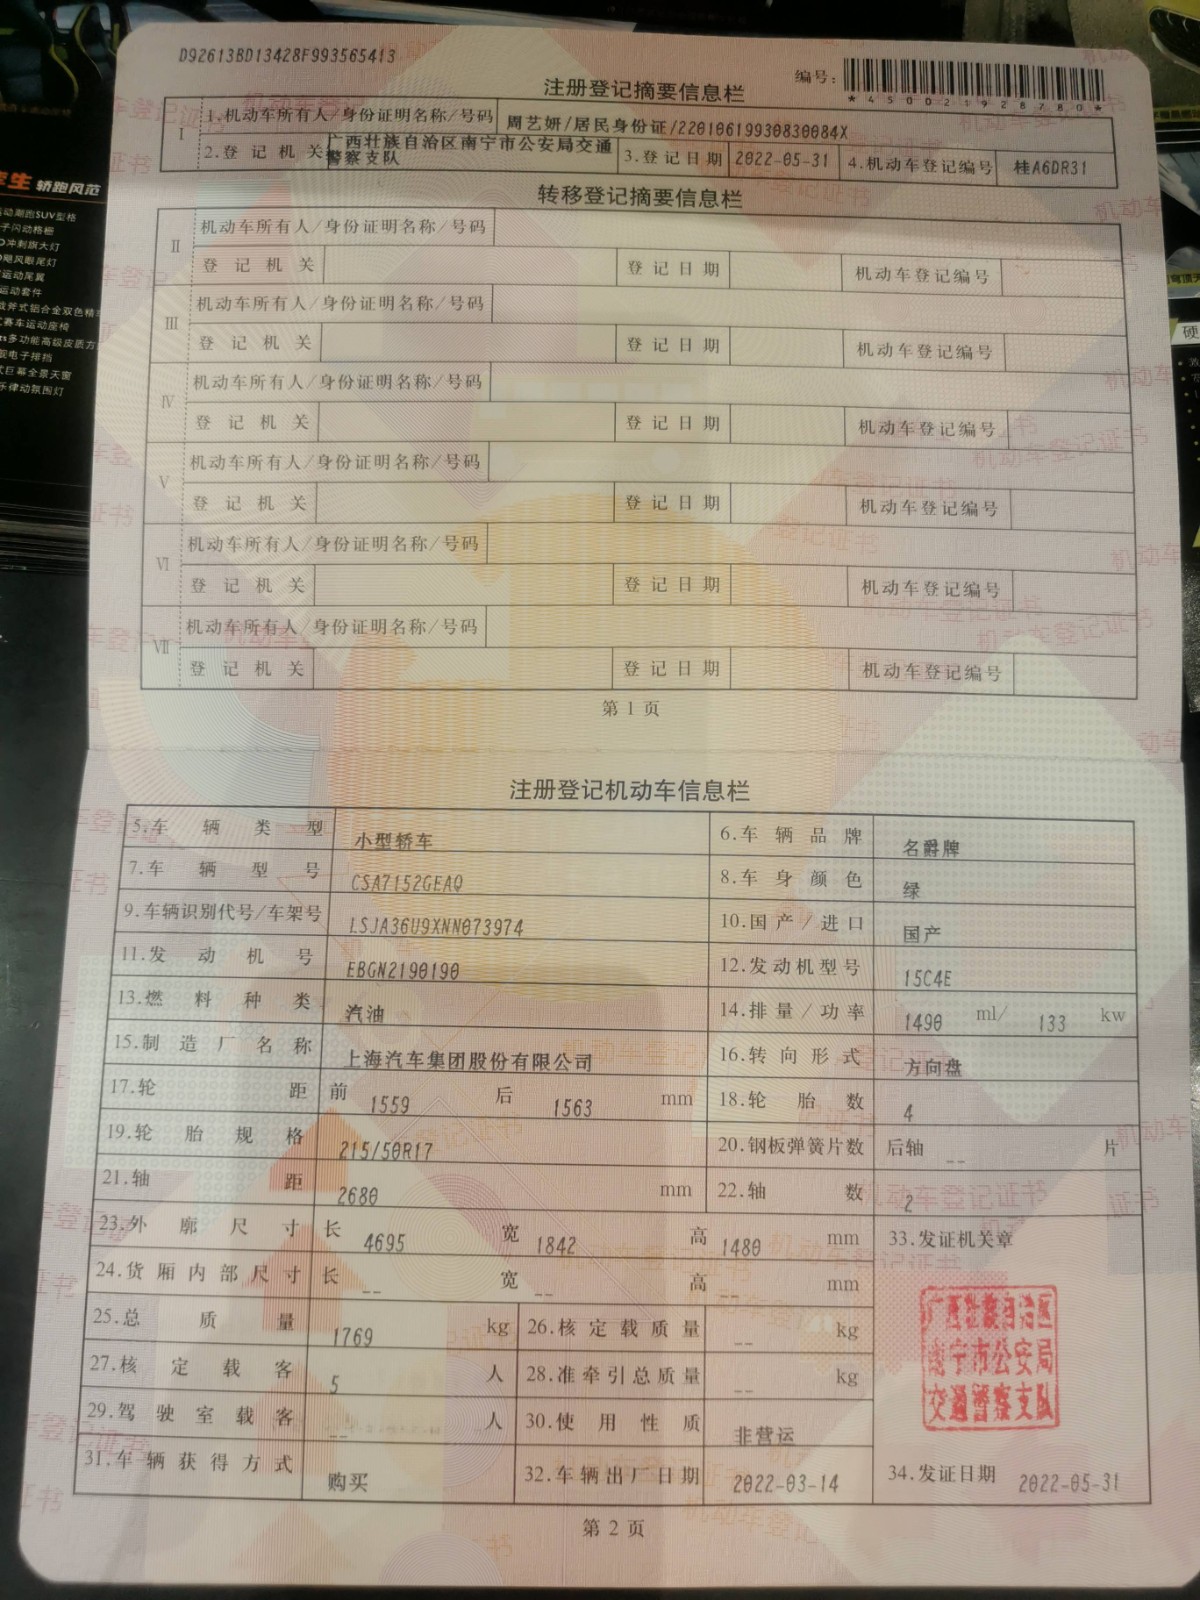 D92613BD13428F993565413
编号:
*450021928780*
注册登记摘要信息栏
I
1.机动车所有人/身份证明名称/号码 周艺妍/居民身份证/22010619930830084X
2.登记机关 广西壮族自治区南宁市公安局交通警察支队 3.登记日期 2022-05-31 4.机动车登记编号 桂A6DR31
转移登记摘要信息栏
II 机动车所有人/身份证明名称/号码
登记机关 登记日期 机动车登记编号
III 机动车所有人/身份证明名称/号码
登记机关 登记日期 机动车登记编号
IV 机动车所有人/身份证明名称/号码
登记机关 登记日期 机动车登记编号
V 机动车所有人/身份证明名称/号码
登记机关 登记日期 机动车登记编号
VI 机动车所有人/身份证明名称/号码
登记机关 登记日期 机动车登记编号
VII 机动车所有人/身份证明名称/号码
登记机关 登记日期 机动车登记编号
第1页
注册登记机动车信息栏
5.车辆类型 小型轿车 6.车辆品牌 名爵牌
7.车辆型号 CSA7152GEAQ 8.车身颜色 绿
9.车辆识别代号/车架号 LSJA36U9XNN073974 10.国产/进口 国产
11.发动机号 EBGN2190190 12.发动机型号 15C4E
13.燃料种类 汽油 14.排量/功率 1490 ml/ 133 kw
15.制造厂名称 上海汽车集团股份有限公司 16.转向形式 方向盘
17.轮距 前 1559 后 1563 mm 18.轮胎数 4
19.轮胎规格 215/50R17 20.钢板弹簧片数 后轴 -- 片
21.轴距 2680 mm 22.轴数 2
23.外廓尺寸 长 4695 宽 1842 高 1480 mm 33.发证机关章
24.货厢内部尺寸 长 -- 宽 -- 高 -- mm
25.总质量 1769 kg 26.核定载质量 -- kg
27.核定载客 5 人 28.准牵引总质量 -- kg
29.驾驶室载客 -- 人 30.使用性质 非营运
31.车辆获得方式 购买 32.车辆出厂日期 2022-03-14 34.发证日期 2022-05-31
广西壮族自治区
南宁市公安局
交通警察支队
第2页
轿跑风范
子闪动格栅
冲刺旗大灯
飓风眼尾灯
运动尾翼
运动套件
赛车运动座椅
电子排挡
巨幕全景天窗
乐律动氛围灯